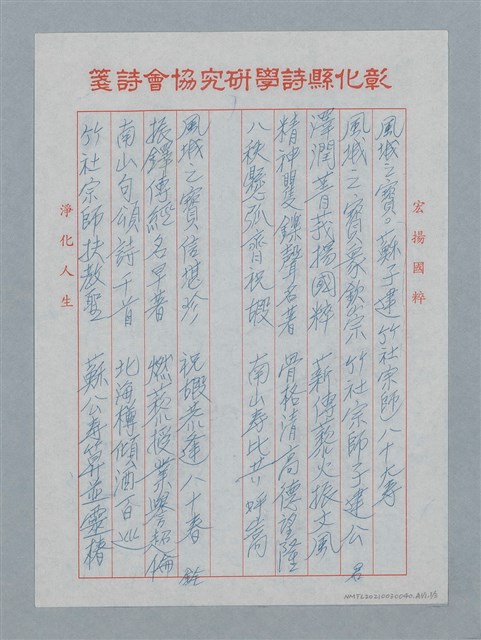 彰化縣詩學研究協會詩箋
宏揚國粹
風城之寶 蘇子建竹社宗師八十大壽
風城之寶眾欽崇 竹社宗師子建公 名
澤潤菁莪揚國粹 薪傳藜火振文風
精神矍鑠聲名著 骨格清高德望隆
八秩懸弧齊祝嘏 南山壽比共呼嵩
風城之寶信堪珍 祝嘏恭逢八十春 銓
振鐸傳經名早著 燃藜授業譽超倫
南山句頌詩千首 北海樽傾酒百巡
竹社宗師扶教聖 蘇公壽算並靈椿
淨化人生